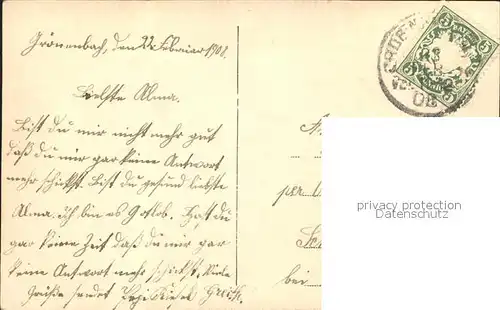 Grönenbach, den 22 Februier 1908.
Liebste Alma.
Bist du mir nicht mehr gut
daß du mir gar keine Antwort
mehr schickst. Bist du gesund liebste
Alma. Ich bin es Gottlob. Hast du
gar keine Zeit daß du mir gar
keine Antwort mehr schickst. Viele
Grüße sendet
per
bei
privacy protection
Datenschutz
5
5